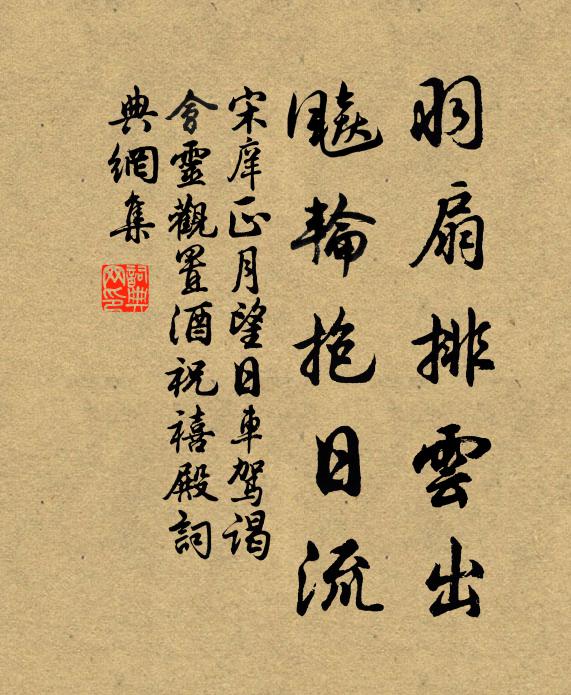 羽扇排雲出
飈輪抱日流
宋庠正月望日車駕謁
會靈觀置酒祝禧殿詞
典網集
詞典網印